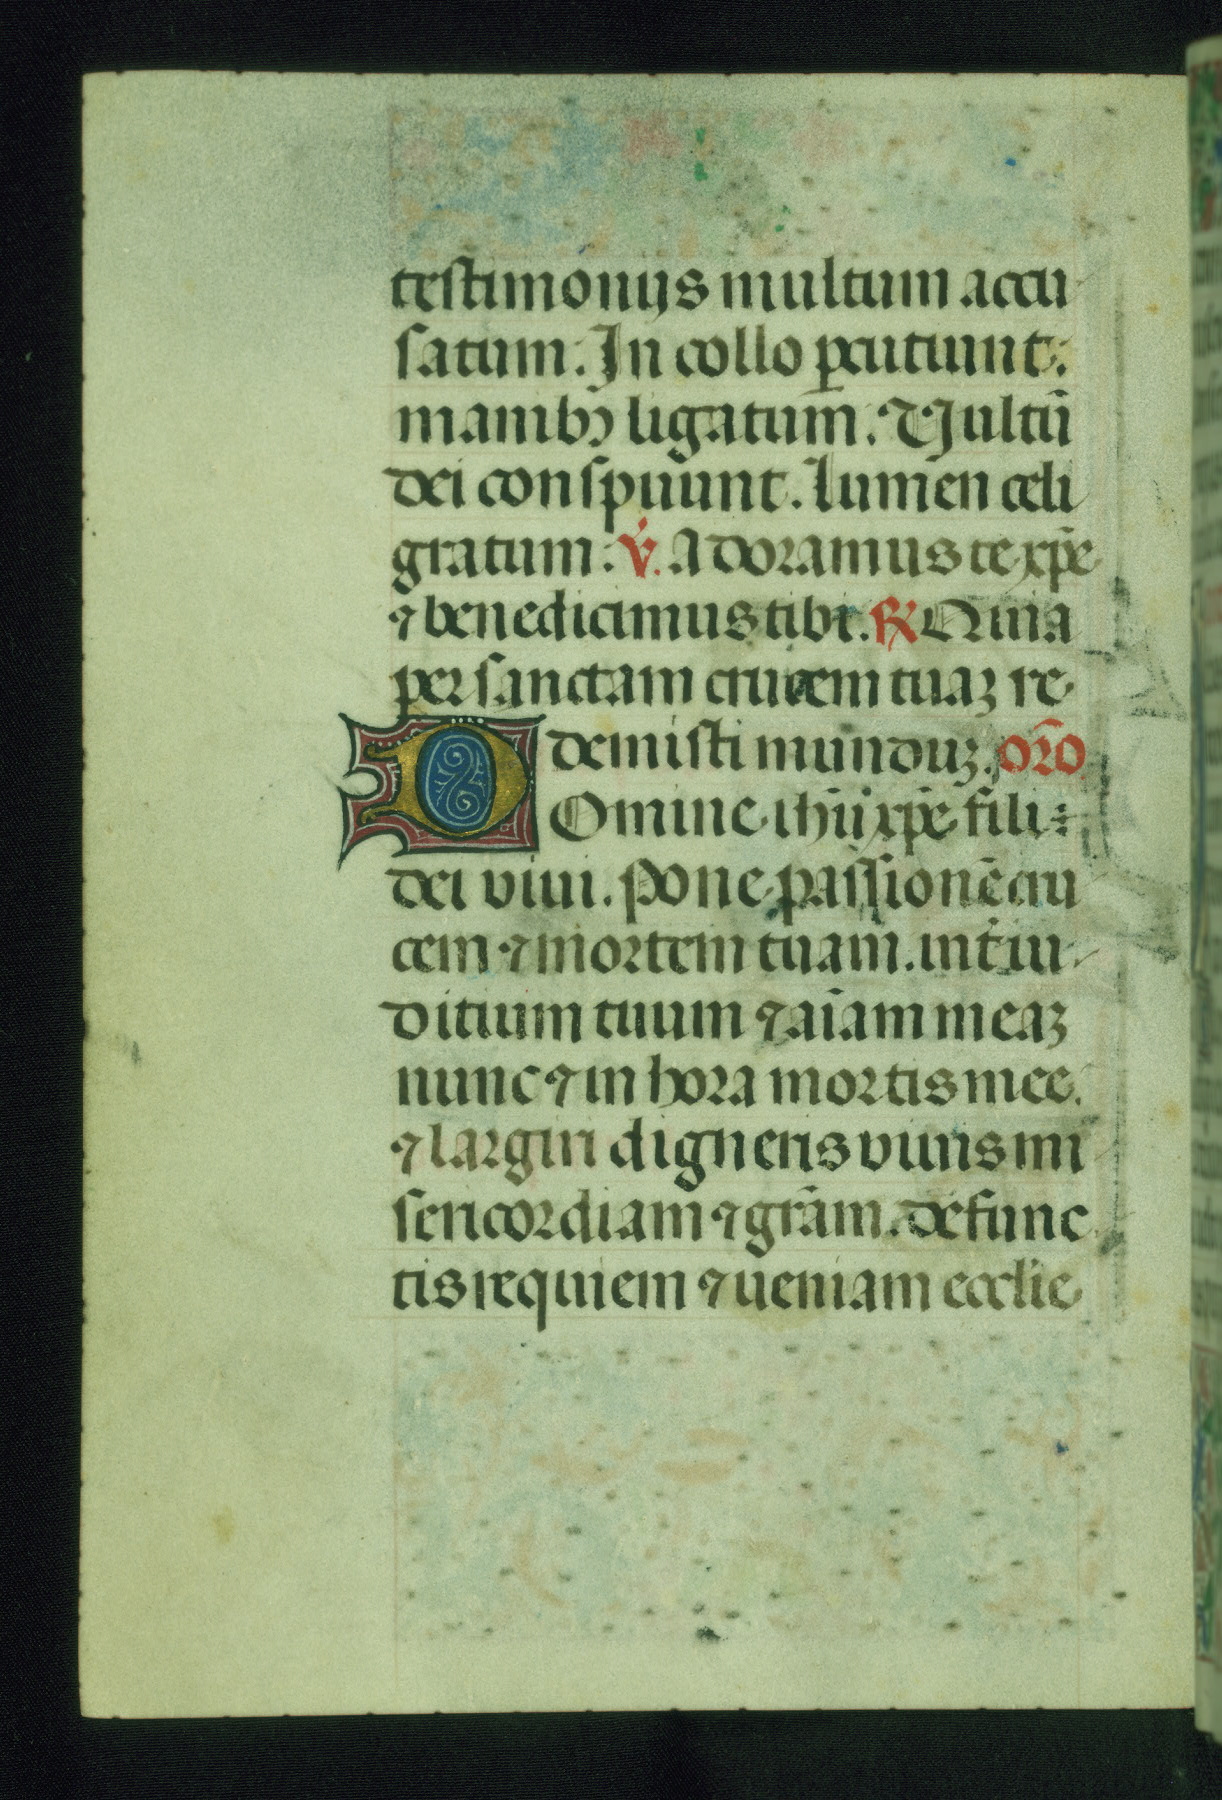 testimonijs multum accu
satum: In collo ꝑcutiunt:
manibꝰ ligatum. Vultū
dei conspuunt. lumen celi
gratum: v̇. Adoramus te xp̄e
⁊ benedicimus tibi. ℟ Quia
per sanctam crucem tuaꝫ re
demisti munduꝫ. or̄o
Domine ihū xp̄e fili
dei viui. Pone passionē cru
cem ⁊ mortem tuam. int̄ iu
ditium tuum ⁊ aīam meaꝫ
nunc ⁊ in hora mortis mee.
⁊ largiri digneris viuis mi
sericordiam ⁊ grām. defunc
tis requiem ⁊ ueniam ecclie